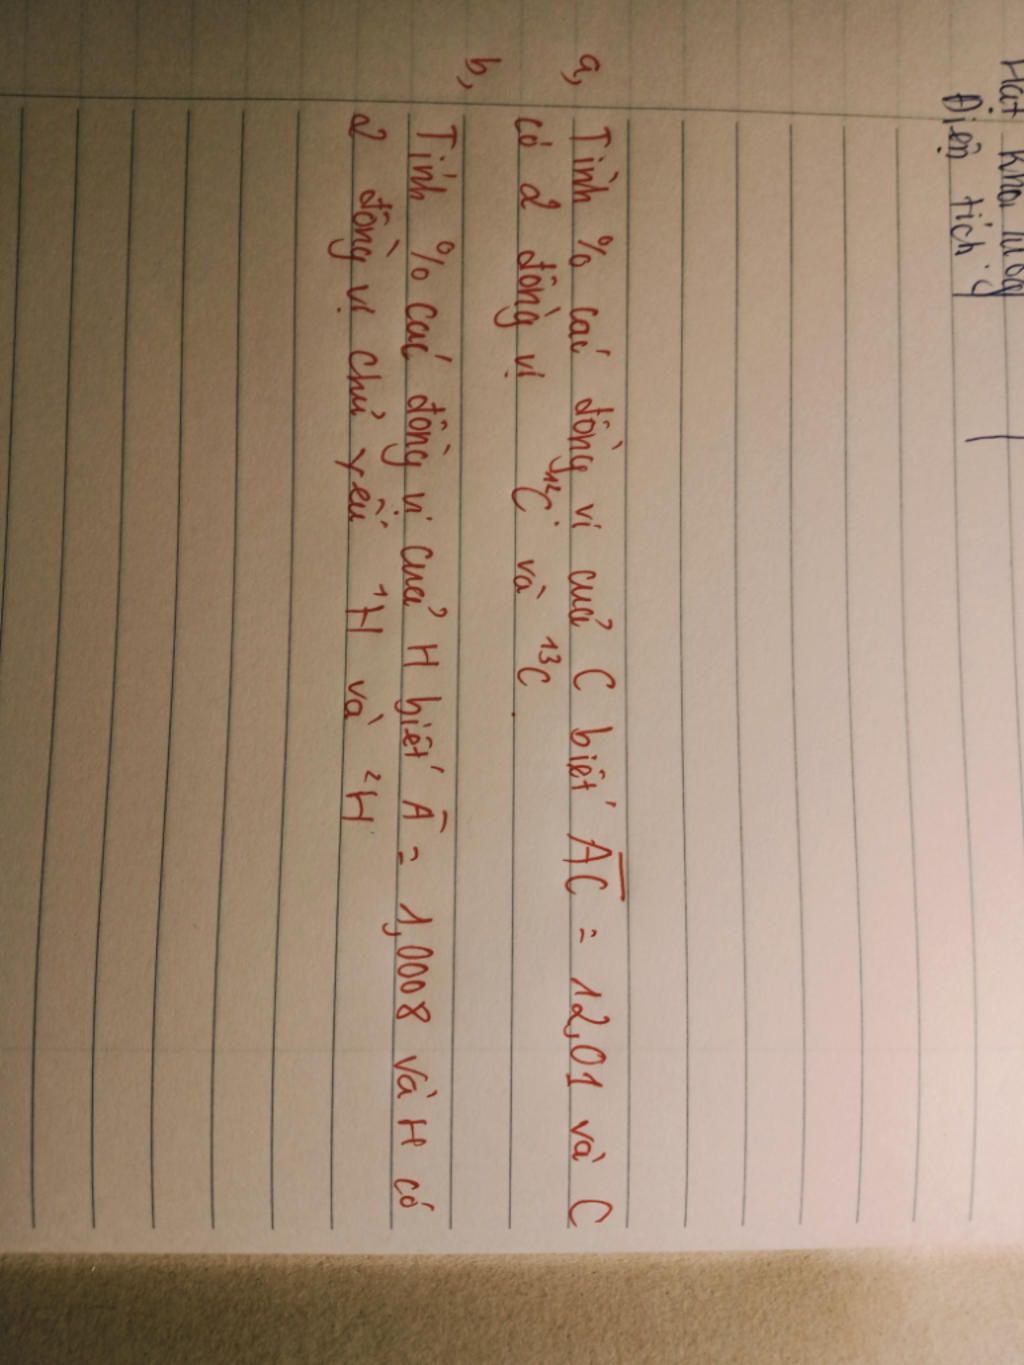 Hạt khối lượng
Điện tích
a, Tính % các đồng vị của C biết AC = 12,01 và C
có 2 đồng vị ¹²C và ¹³C.
b, Tính % các đồng vị của H biết A = 1,0008 và H có
2 đồng vị chủ yếu ¹H và ²H